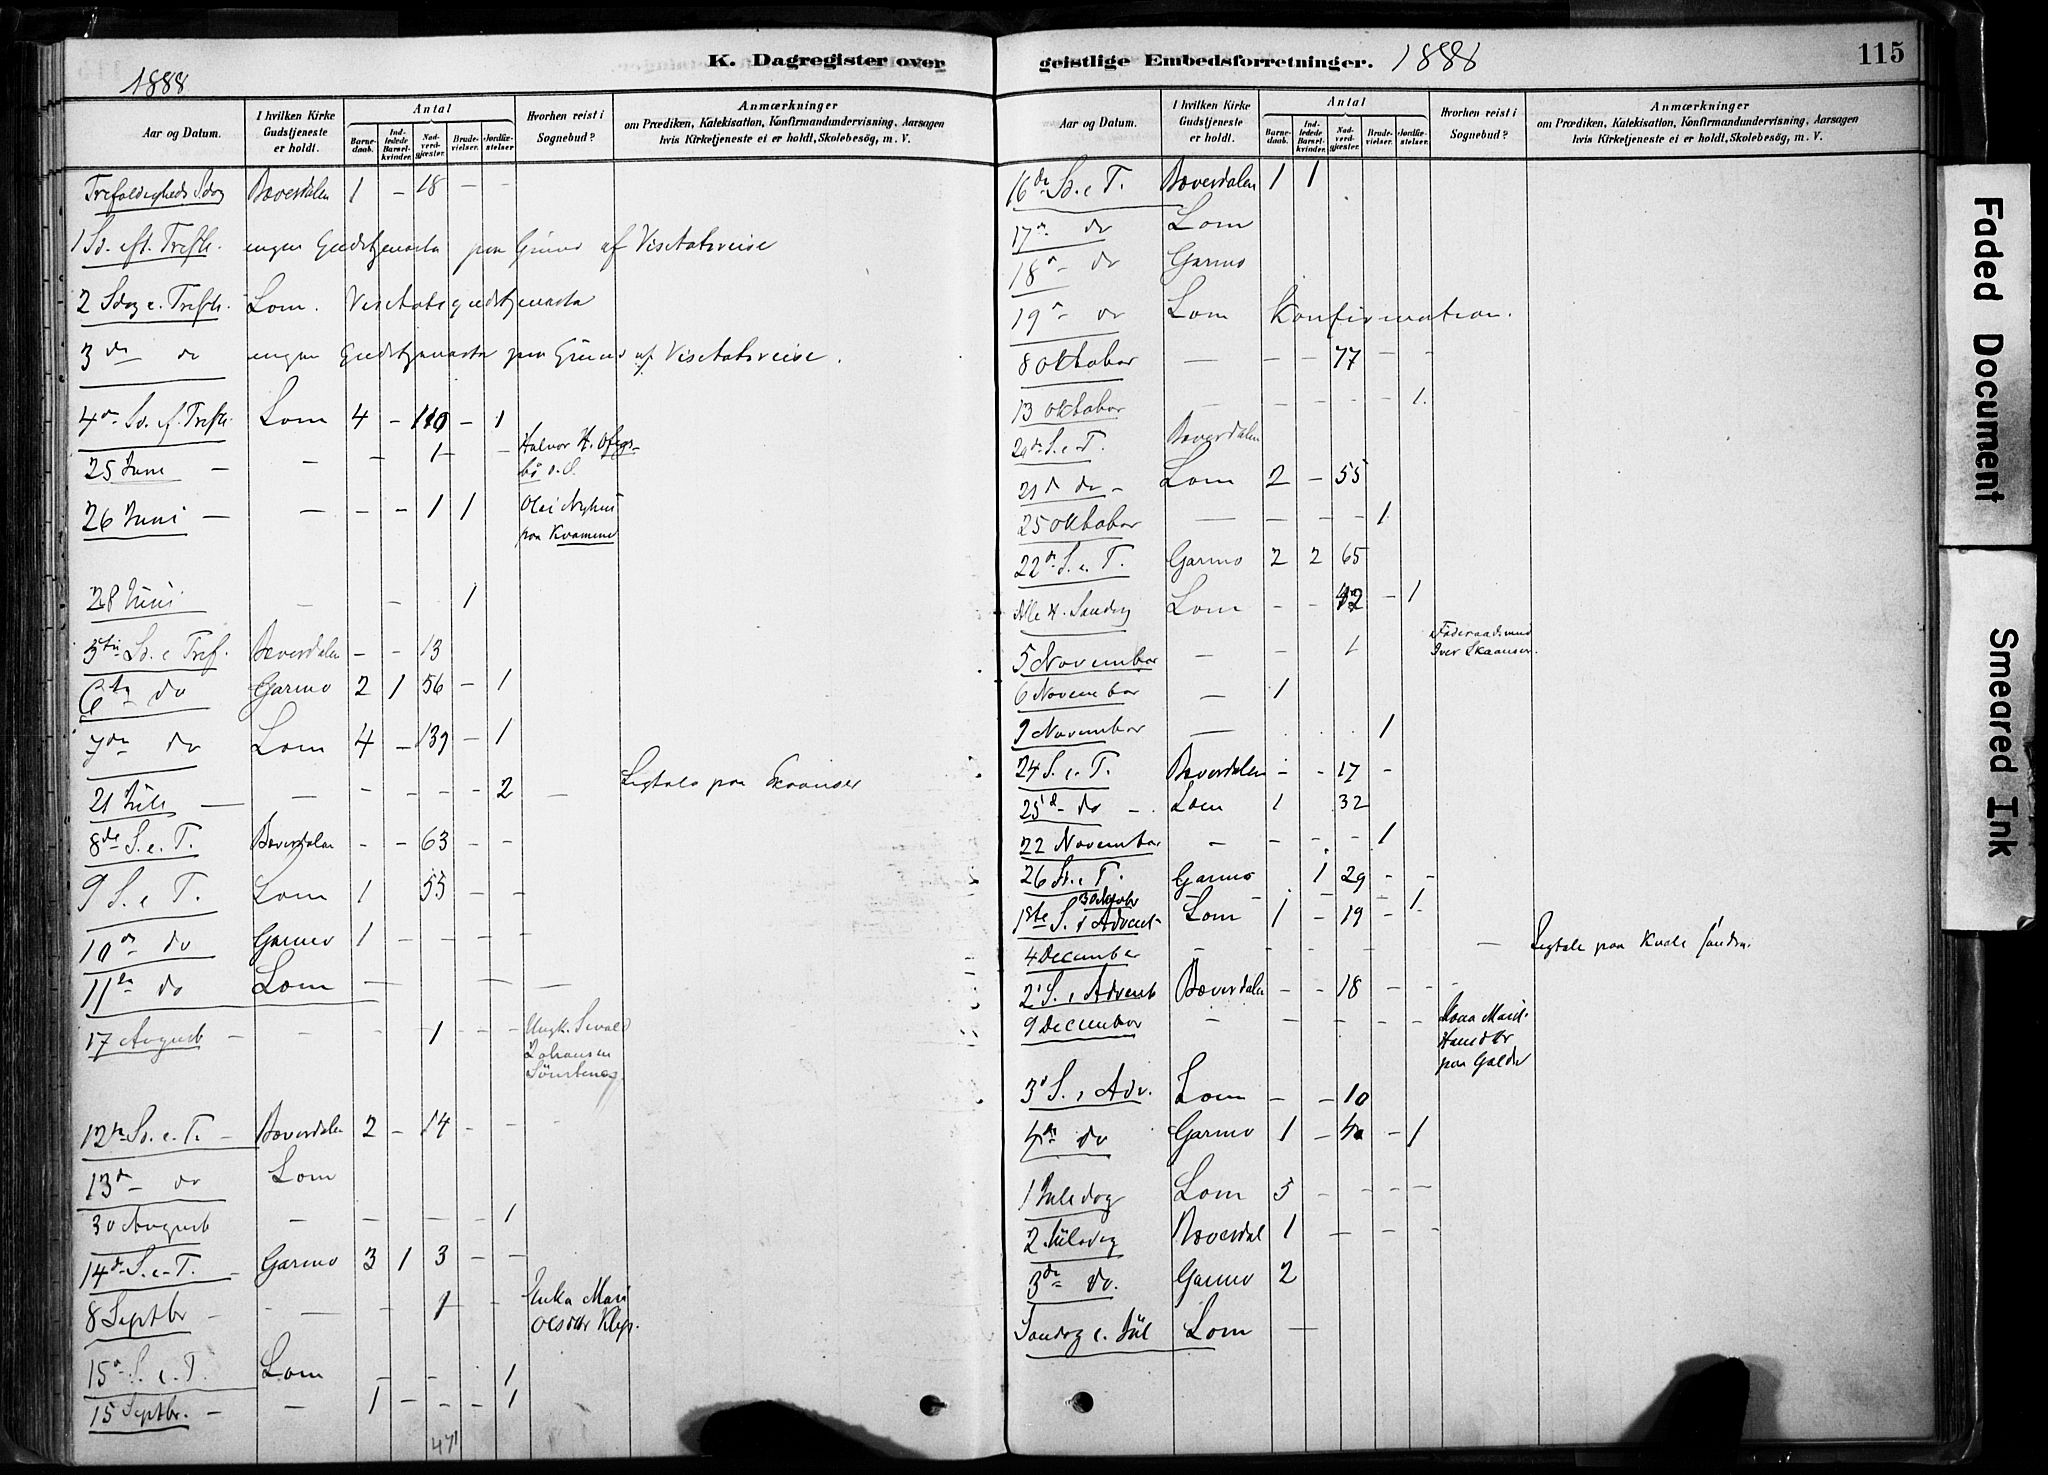 1888
K. Dagregister over
Aar og Datum.
I hvilken Kirke Gudstjeneste er holdt.
Antal
Barnedaab.
Indledede Barselkvinder.
Nadverdgjæster.
Brudevielser.
Jordfæstelser
Hvorhen reist i Sognebud?
Anmærkninger
om Prædiken, Katekisation, Konfirmandundervisning, Aarsagen
hvis Kirketjeneste ei er holdt, Skolebesøg, m. V.
Trefoldigheds Sdag Bæverdalen 1 – 18 – –
1 Sd. eft. Trefh. ingen Gudstjeneste paa Grund af Visitatsreise
2 Sdag e. Trefh. Lom. Visitatsgudstjeneste
3de do ingen Gudstjeneste paa Grund af Visitatsreise.
4de Sd. ef. Trefh. Lom 4 – 110 – 1
25 Juni – – – 1 – Halvor H.
26 Juni – – – – 1 1 Olei Nyhus
paa Kvamme
28 Juni – – 1
5te Sd. e Tref. Bæverdalen – – 13
6te do Garmo 2 1 56 – 1
7de do Lom 4 – 139 – 1
21 Juli – – – – – – 2 – Ligtale paa Skaanser
8de S. e. T. Bæverdalen – – 63 – –
9 S. e T. Lom 1 55 – –
10de do Garmo 1 – – – –
11te do Lom – – – –
17 August – – – – 1 – – Ungk. Sivald
Johansen
12te Sd. e. T. – Bæverdalen 2 – 14 – – –
13de do Lom
30 August – – – – 1
14de S. e. T. – Garmo 3 1 3 – –
8 Septbr – – – – 1 – Enka Mari
Olsdttr Klep.
15de S. e. T. Lom – – 1
15 Septbr. – – 1 – – – 1
471
geistlige Embedsforretninger. 1888
115
Aar og Datum.
I hvilken Kirke Gudstjeneste er holdt.
Antal
Barnedaab.
Indledede Barselkvinder.
Nadverdgjæster.
Brudevielser.
Jordfæstelser.
Hvorhen reist i Sognebud?
Anmærkninger
om Prædiken, Katekisation, Konfirmandundervisning, Aarsagen
hvis Kirketjeneste ei er holdt, Skolebesøg, m. V.
16de Sd. e T. Bæverdalen 1 1
17de do Lom
18de do Garmo
19de do Lom Konfirmation.
8 Oktober – – – 77 – –
13 Oktober – – – – – 1.
20de S. e. T. Bæverdalen
21de do – Lom 2 – 55
25 Oktober – – – – 1
22de S. e. T. Garmo 2 2 65
Alle H. Søndag Lom – – 12 – 1
5 November – – 1 Føderaadsmand
Iver Skaanser.
6 November – 1
9 November – 1
24 S. e. T. Bæverdalen – – 17 –
25de do – Lom 1 32
22 November – – – – 1
26 Sd. e T. Garmo 1 29 – –
30 Novbr – – – – 1.
1ste S. i Advent Lom 1 – 19 –
4 December – – – – – – – Ligtale paa
2. S. i Advent Bæverdalen – – 18 – – –
9 December – – – – – – Kona Marit
Hansdttr
paa Galde
3de S. i Adv. Lom – – 10
4de do Garmo 1 – – 1
1 Juledag Lom 5 – – – –
2 Juledag Bæverdal 1 – – –
3de do. Garmo 2
Søndag e. Jul Lom –
Faded Document
Smeared Ink